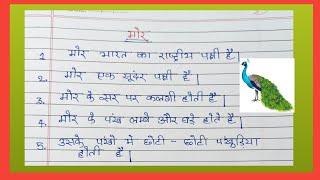 मोर
1. मोर भारत का राष्ट्रीय पक्षी है।
2. मोर एक सुंदर पक्षी है।
3. मोर के सर पर कलगी होती है।
4. मोर के पंख लम्बे और बड़े होते है।
5. उसके पंखो मे छोटी - छोटी पंखुड़िया
होती है।